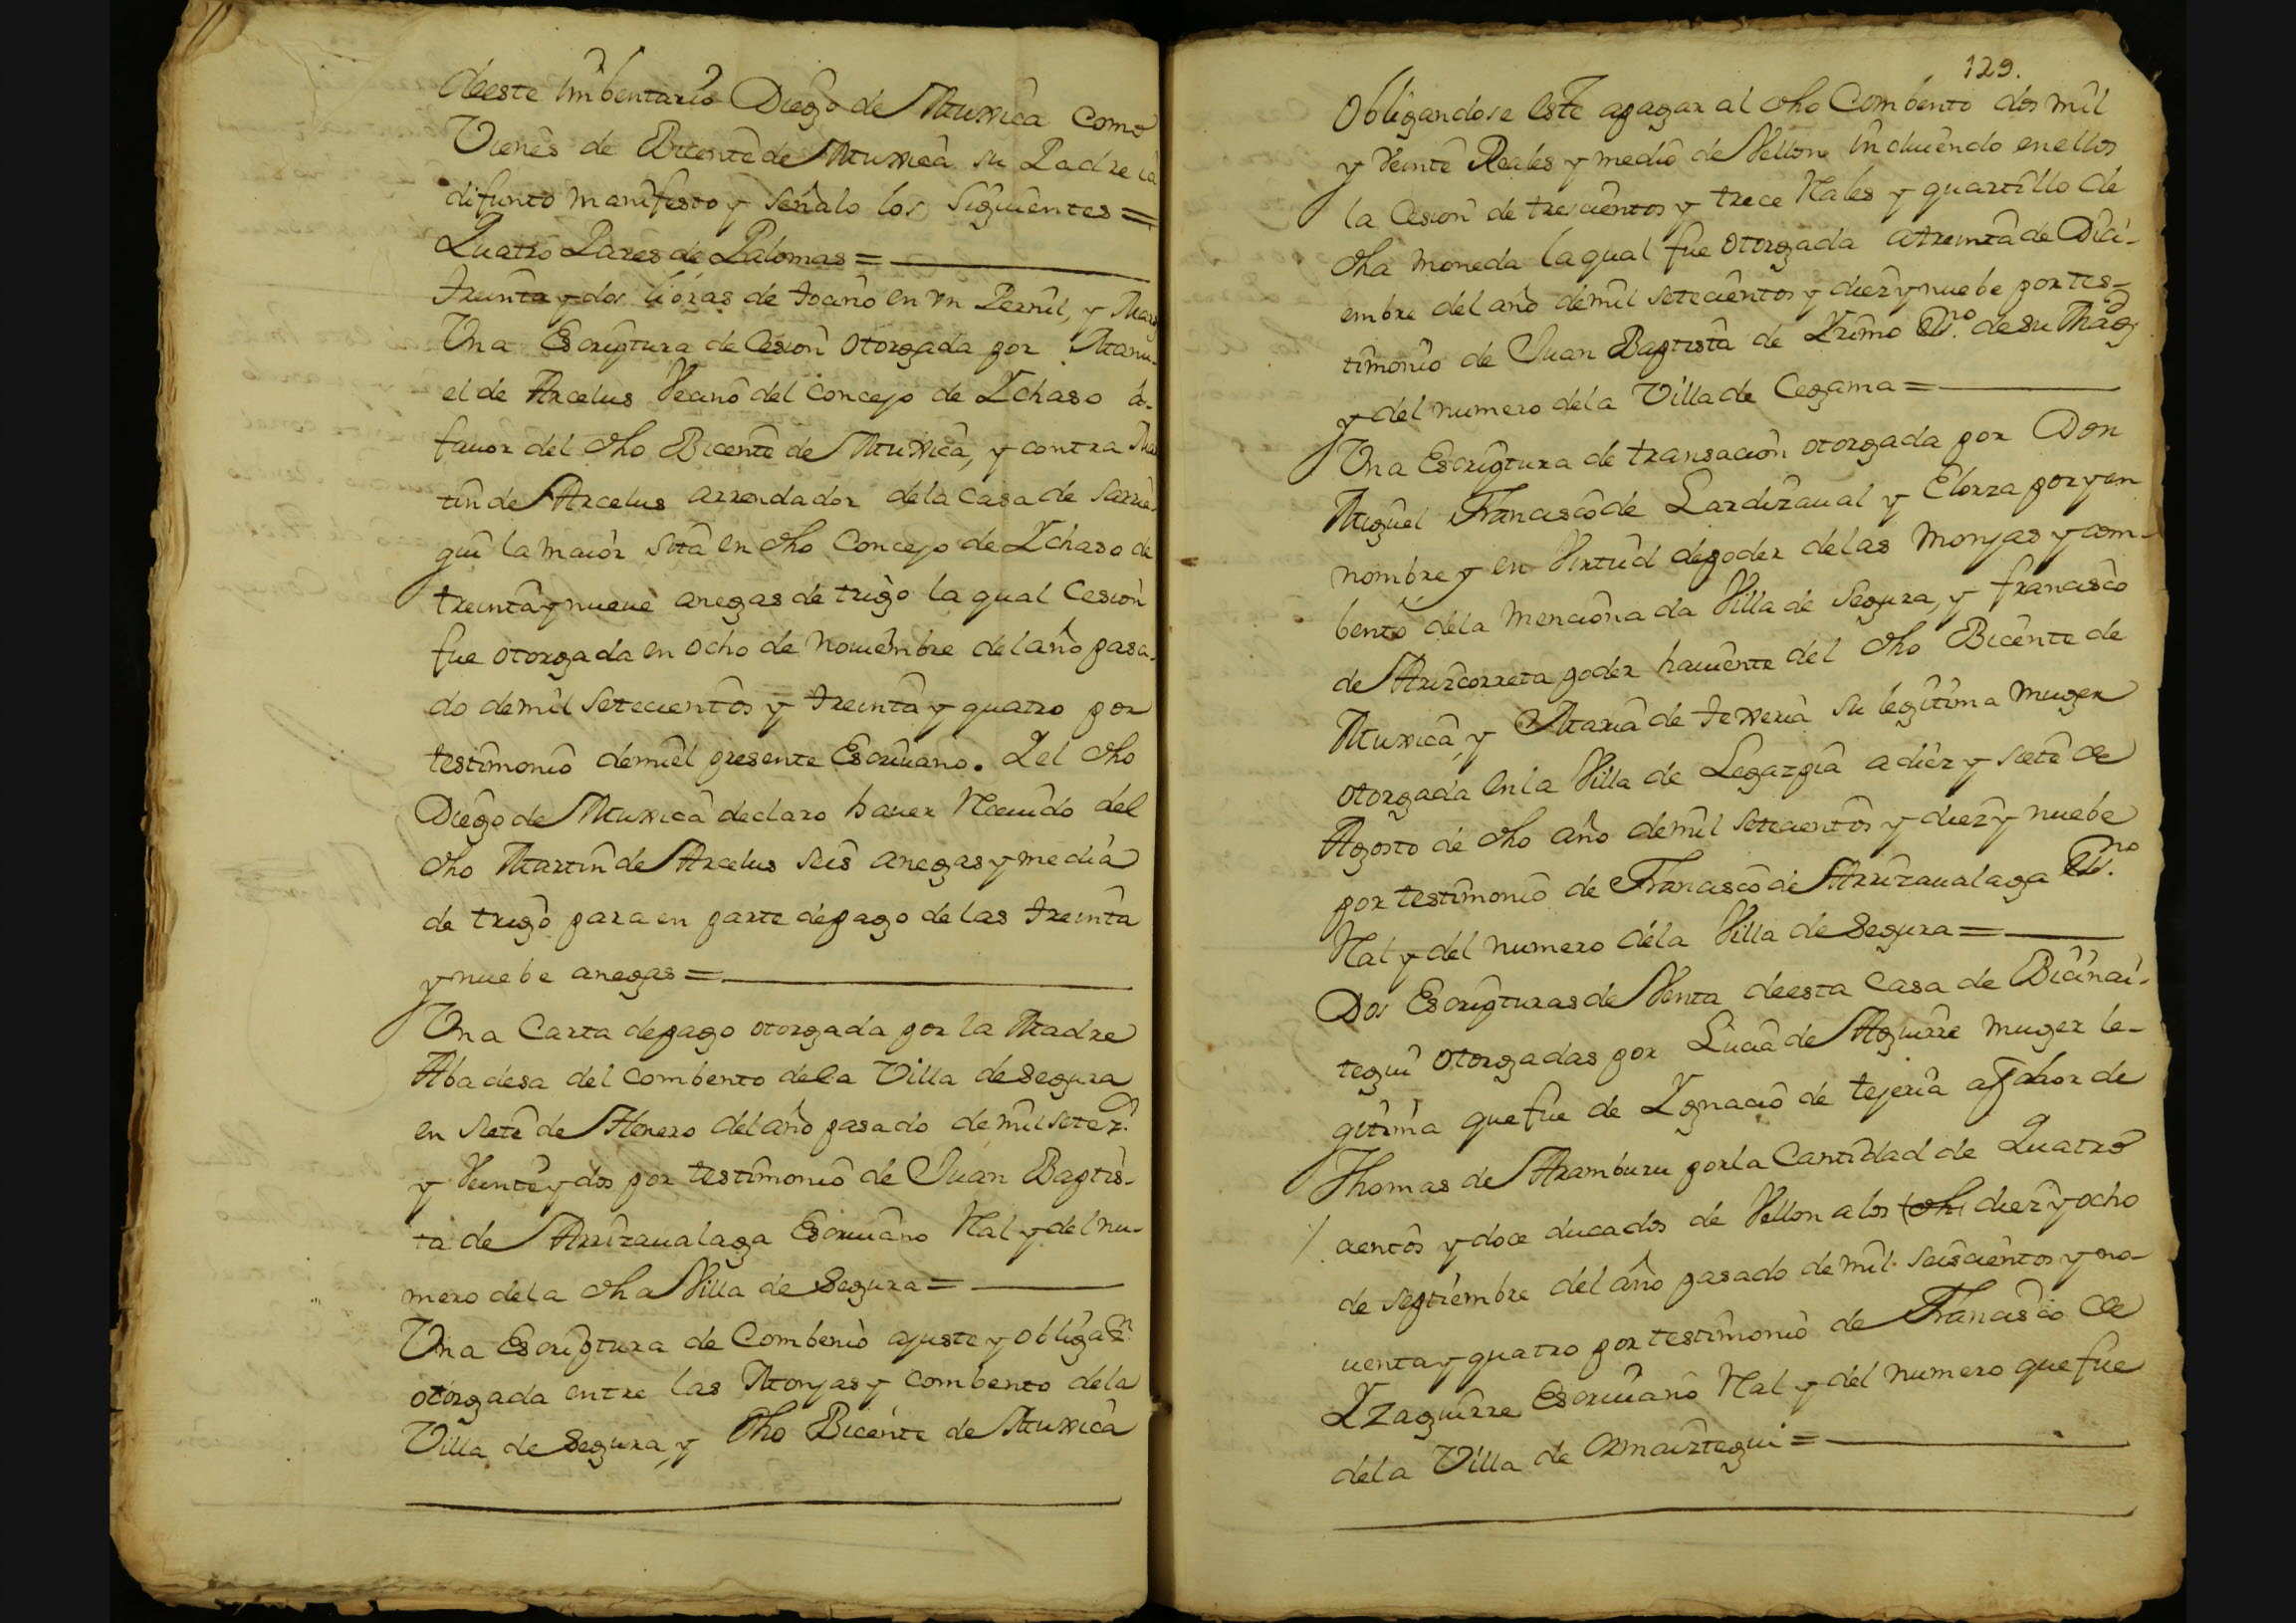 deeste Imbentario Diego de Muxica como
Vienes de Bicente de Muxica su Padre ia
difunto manifesto y señalo los siguientes =
Quatro Pares de Palomas =
treinta y dos libras de tocino en vn Pernil, y
Vna Escriptura de Cesion otorgada por Manu-
el de Arcelus Vecino del Concejo de Ychaso á-
fauor del dho Bicente de Muxica, y contra Mar
tin de Arcelus arrendador dela Casa de Sarrie
gui la maior sita en dho Concejo de Ychaso de
treinta y nueue anegas de trigo la qual Cesion
fue otorgada en ocho de Nouiembre del año pasa-
do de mil setecientos y treinta y quatro por
testimonio demi el presente Escriuano. Y el dho
Diego de Muxica declaro hauer Rceuido del
dho Martin de Arcelus seis anegas y media
de trigo para en parte depago de las treinta
y nuebe anegas =
Vna Carta depago otorgada por la Madre
Abadesa del Combento dela Villa de Segura
en siete de Henero del año pasado de mil setez.
y Veinte y dos por testimonio de Juan Baptis-
ta de Arrizaualaga Escriuano Ral y del nu-
mero dela dha Villa de Segura =
Vna Escriptura de Combenio ajuste y obligaz.n
otorgada entre las Monjas y Combento dela
Villa de Segura, y dho Bicente de Muxica
129.
Obligandose este apagar al dho Combento dos mil
y Veinte Reales y medio de Vellon incluiendo enellos
la Cesion de trescientos y trece Rales y quartillo de
dha moneda laqual fue otorgada atreinta de Dici-
embre del año demil setecientos y diez y nuebe por tes-
timonio de Juan Baptista de Yrimo Es.no de su Mag.
y del numero dela Villa de Cegama =
Vna Escriptura de transacion otorgada por Don
Miguel Francisco de Lardizaual y Elorza por y en
nombre y en Virtud depoder delas Monjas y com-
bento dela mencionada Villa de Segura, y francisco
de Arizcorreta poder hauiente del dho Bicente de
Muxica, y Maria de texeria su legitima muger
otorgada en la Villa de Legazpia a diez y siete de
Agosto de dho año demil setecientos y diez y nuebe
por testimonio de Francisco de Arrizaualaga Es.no
Ral y del numero dela Villa de Segura =
Dos Escripturas de Venta deesta Casa de Bicinai-
tegui otorgadas por Lucia de Aguirre muger le-
gitima que fue de Ygnacio de tejeria afabor de
Thomas de Aramburu por la Cantidad de Quatro
cientos y doce ducados de Vellon a los (oh) diez y ocho
de septiembre del año pasado de mil seiscientos y no-
uenta y quatro por testimonio de Francisco de
Yzaguirre Escriuano Ral y del numero que fue
dela Villa de Ormaiztegui =